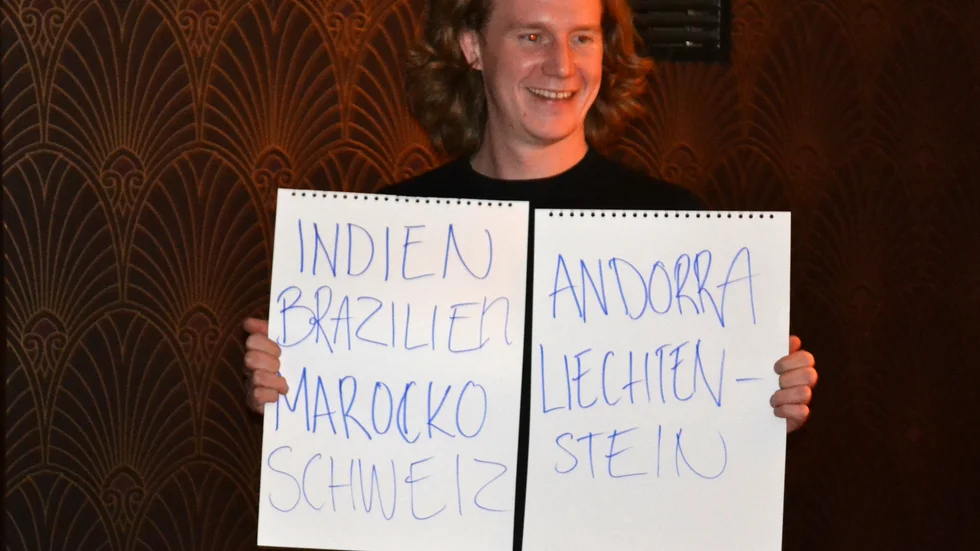 INDIEN
BRAZILIEN
MAROCKO
SCHWEIZ
ANDORRA
LIECHTEN-
STEIN